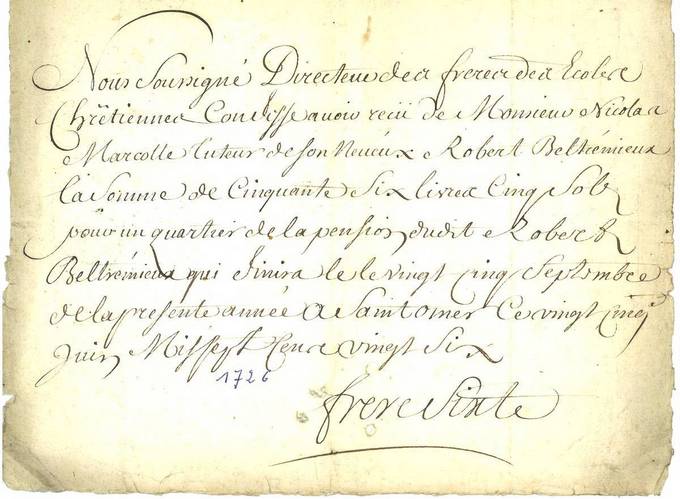 Nous Soussigné Directeur des freres des Ecoles
Chrêtiennes Confesse avoir reçü de Monsieur Nicolas
Marcolle tuteur de son Neveux Robert Beltrémieux
la Somme de Cinquante Six livres Cinq Sols
pour un quartier de la pension dudit Robert
Beltrémieux qui finira le le vingt cinq Septembre
de la presente année A Saint omer Ce vingt cinq
Juin Mil Sept Cens vingt Six
1726
frere Sixte